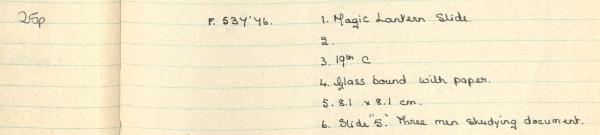 25p F. 537'76. 1. Magic Lantern Slide.
2.
3. 19th C
4. Glass bound with paper.
5. 8.1 x 8.1 cm.
6. Slide "5." Three men studying document.